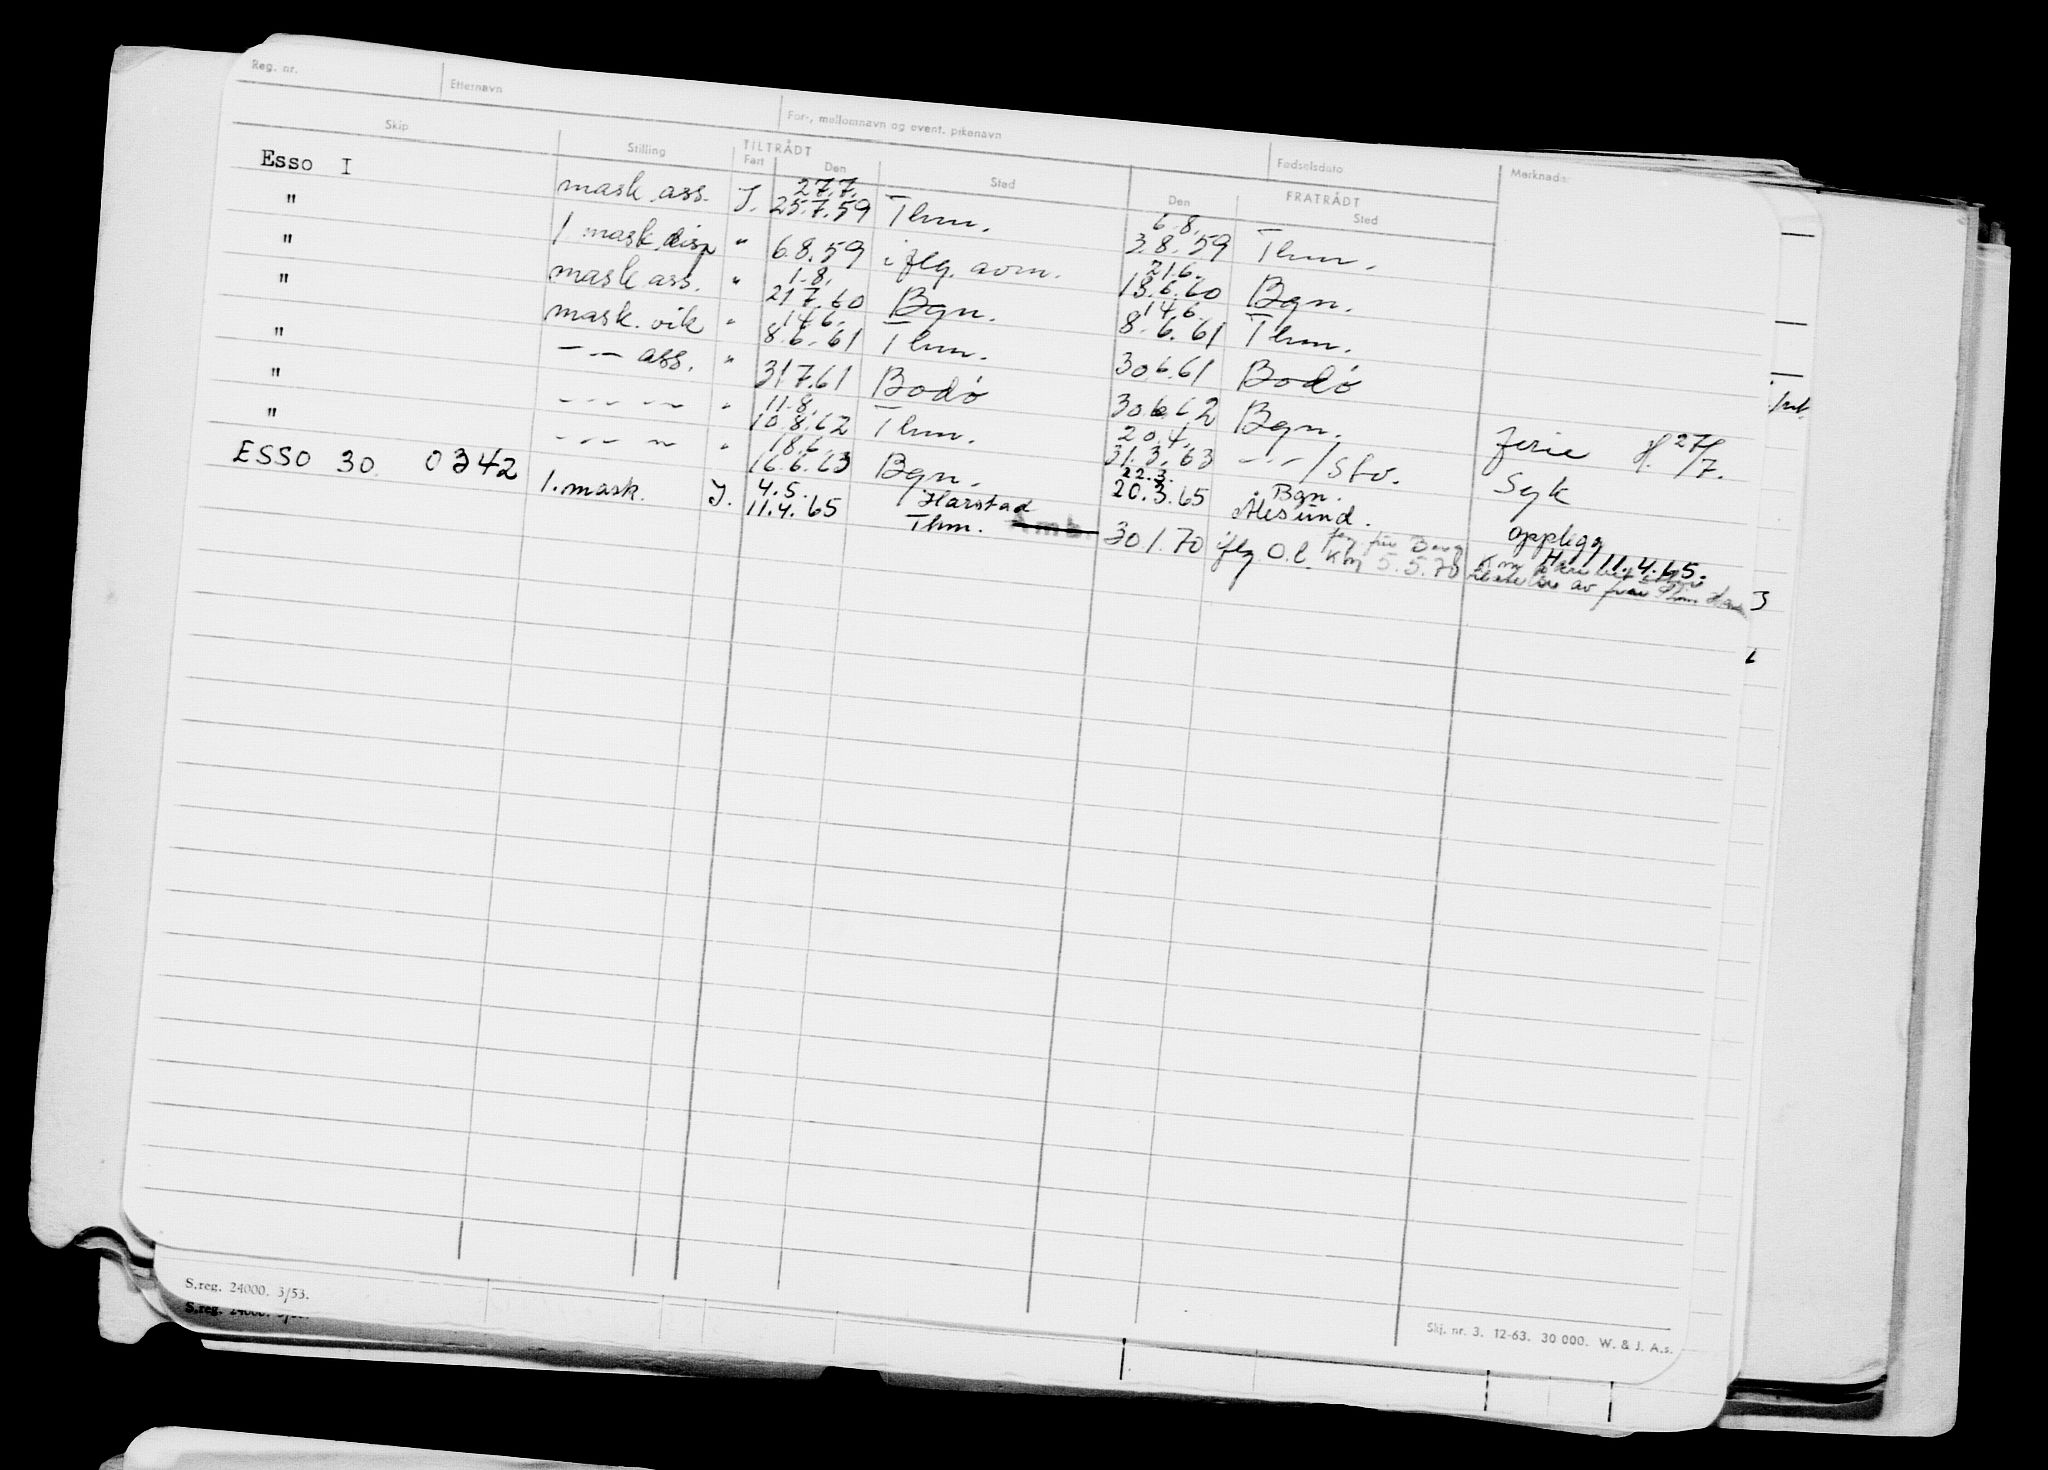 Reg. nr. Etternavn For-, mellomnavn og event. pikenavn Fødselsdato Merknader
Skip Stilling TILTRÅDT Fart Den Sted FRATRÅDT Den Sted
Esso I mask. ass. J. 27.7. 25.7.59 Thm. 6.8. 3.8.59 Thm.
" 1 mask. disp " 6.8.59 iflg. avm. 21.6. 18.6.60 Bgn.
" mask ass. " 1.8. 21.7.60 Bgn. 14.6. 8.6.61 Thm.
" mask. vik " 14.6. 8.6.61 Thm. 30.6.61 Bodø
" –"– ass. " 31.7.61 Bodø 30.6.62 Bgn. ferie f. 27/7.
" –"– –"– " 11.8. 10.8.62 Thm. 20.4. 31.3.63 –"–/Stv. Syk
" –"– –"– " 18.6. 16.6.63 Bgn. 22.3. 20.3.65 Bgn. Ålesund. opplegg
ESSO 30. 0342 1. mask. J. 4.5. 11.4.65 Harstad Thm. 30.1.70 iflg O.l. Kbg 5.5.70 H 11.4.65.
av fra
3
S.reg. 24000. 3/53.
S.reg. 24000.
Skj. nr. 3. 12-63. 30 000. W. & J. A.s.